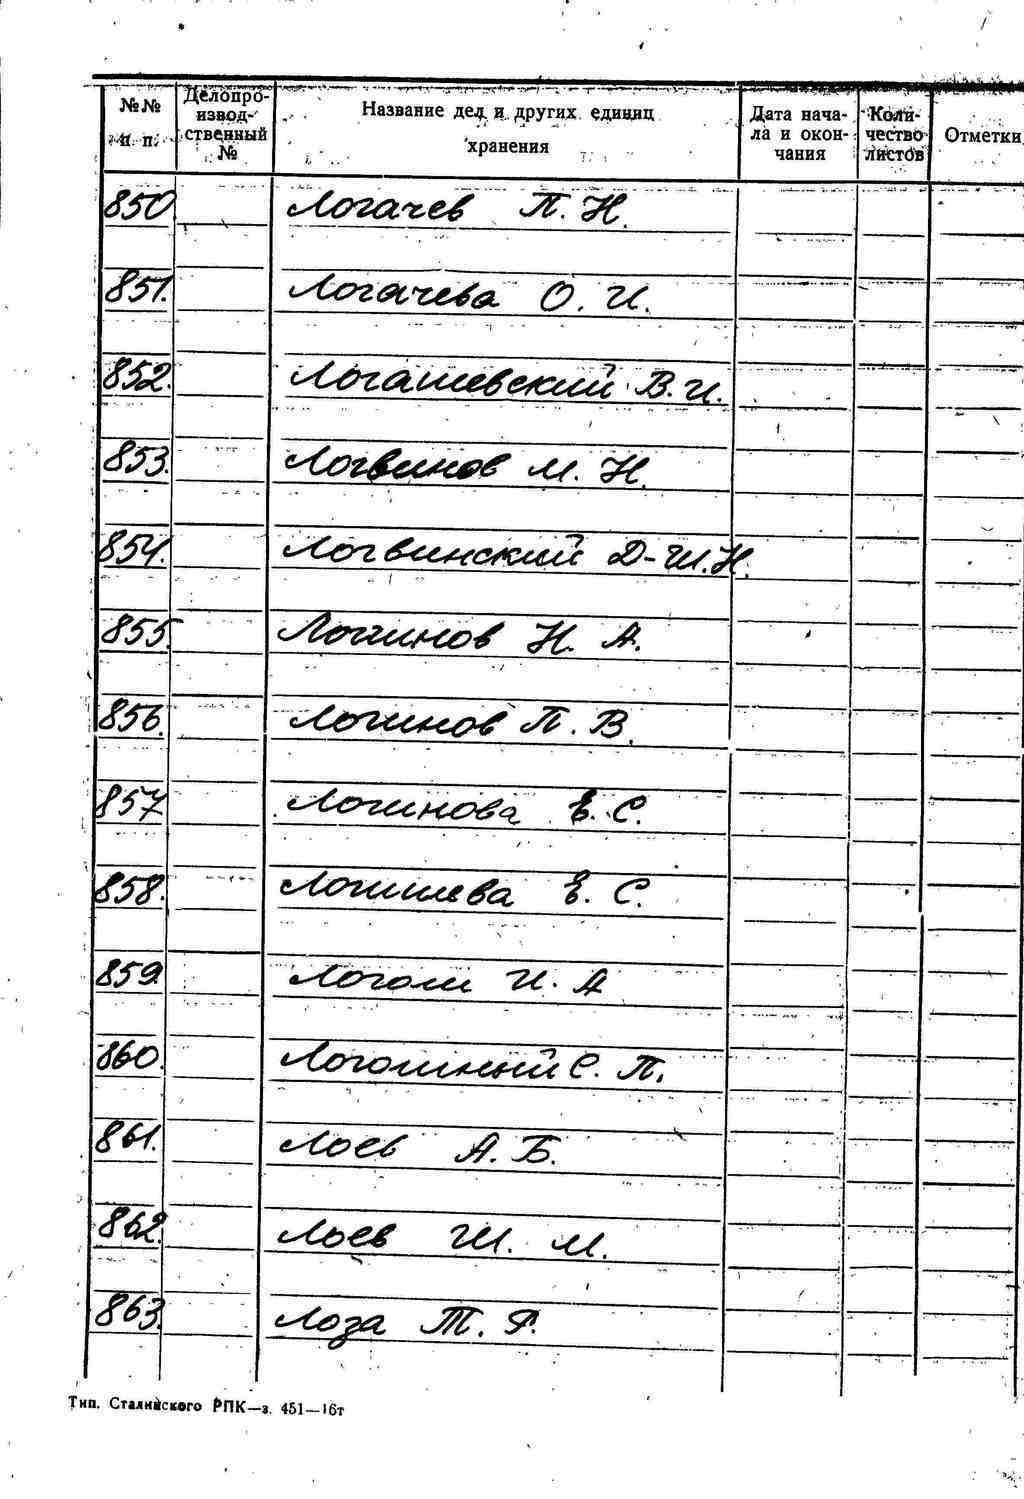 №№ п. п. Делопроизвод-ственный № Название дел и других единиц хранения Дата начала и окончания Количество листов Отметки
850 Логачев П. Н.
851. Логачева О. И.
852. Логашевский В. И.
853. Логвинов М. Н.
854. Логвинский Д-Ш. Н.
855. Логинов Н. А.
856. Логинов П. В.
857 Логинова Е. С.
858. Логишева Е. С.
859. Логоли И. А
860. Логошный С. П.
861. Лоев А. Б.
862. Лоев Ш. М.
863. Лоза Т. Р.
Тип. Сталинского РПК—з. 451—16т